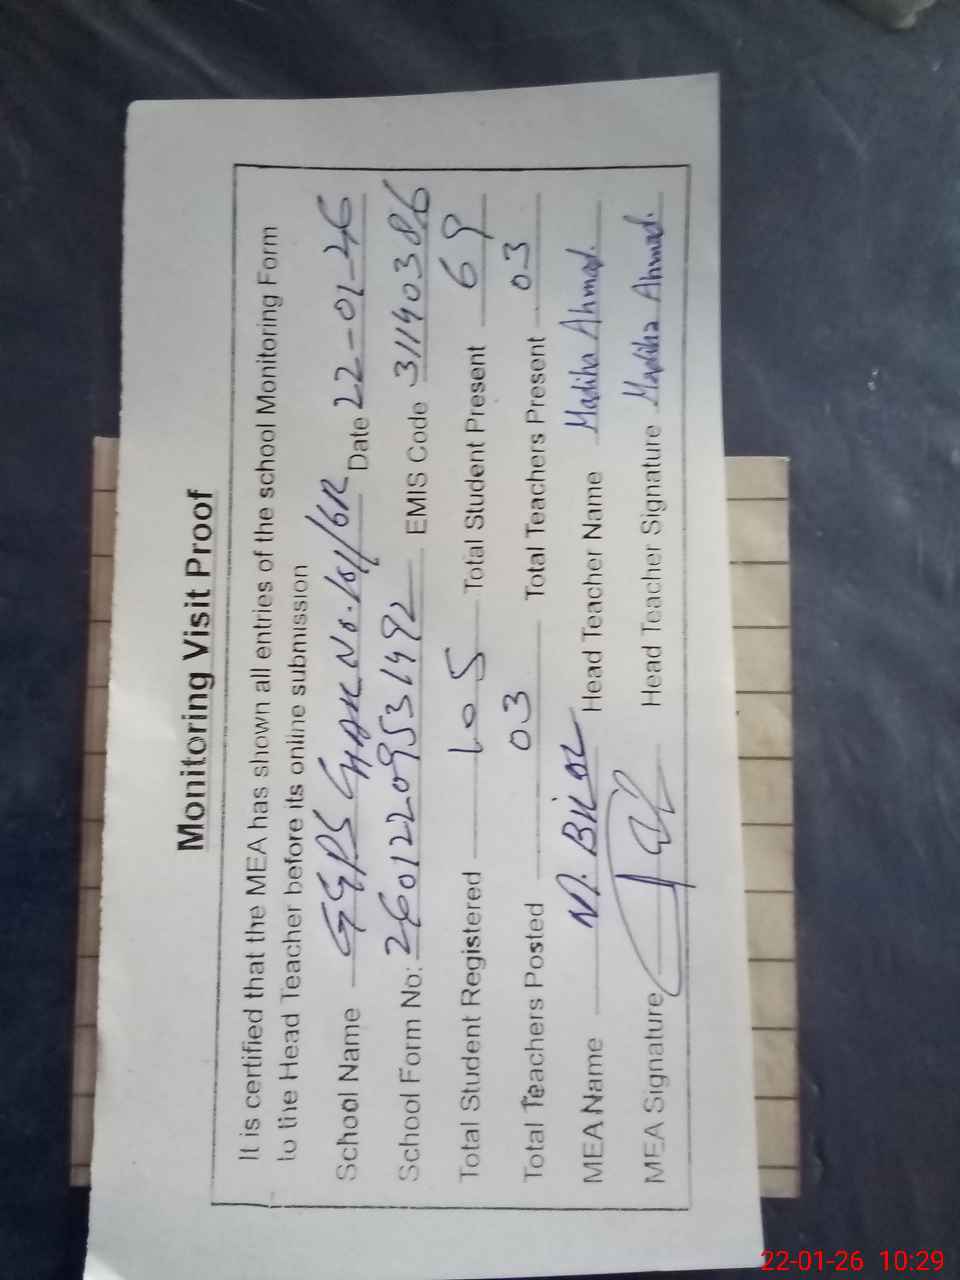 Monitoring Visit Proof
It is certified that the MEA has shown all entries of the school Monitoring Form
to the Head Teacher before its online submission
School Name GGPS CHAK No. 101/6R Date 22-01-26
School Form No: 26012209531492 EMIS Code 31140386
Total Student Registered 105 Total Student Present 69
Total Teachers Posted 03 Total Teachers Present 03
MEA Name M. Bilal Head Teacher Name Madiha Ahmad.
MEA Signature Head Teacher Signature Madiha Ahmad.
22-01-26 10:29